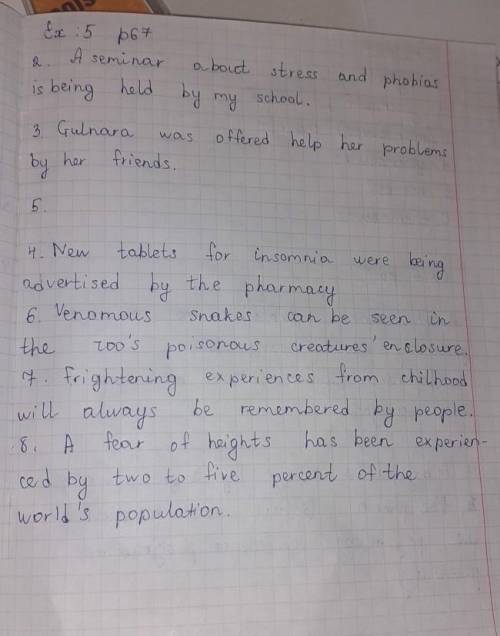 Ex : 5 p67
2. A seminar about stress and phobias
is being held by my school.
3. Gulnara was offered help her problems
by her friends.
5.
4. New tablets for insomnia were being
advertised by the pharmacy
6. Venomous snakes can be seen in
the zoo's poisonous creatures' enclosure.
7. Frightening experiences from chilhood
will always be remembered by people.
8. A fear of heights has been experien-
ced by two to five percent of the
world's population.